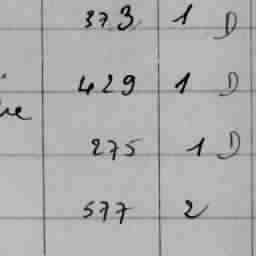 373 1 D
429 1 D
275 1 D
577 2